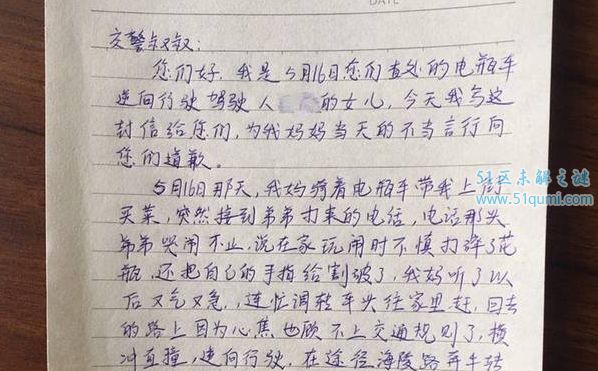 DATE
交警叔叔:
您们好,我是5月16日您们查处的电瓶车
逆向行驶驾驶人 的女儿,今天我写这
封信给您们,为我妈妈当天的不当言行向
您们道歉。
5月16日那天,我妈骑着电瓶车带我上街
买菜,突然接到弟弟打来的电话,电话那头
弟弟哭闹不止,说在家玩闹时不慎打碎了花
瓶,还把自己的手指给割破了,我妈听了以
后又气又急,连忙调转车头往家里赶,回去
的路上因为心焦也顾不上交通规则了,横
冲直撞,逆向行驶,在途径海陵路弄车转
51区未解之谜
www.51qumi.com